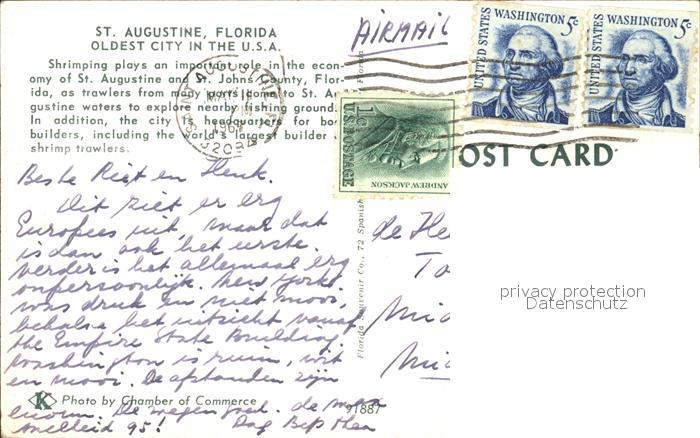 ST. AUGUSTINE, FLORIDA
OLDEST CITY IN THE U.S.A.
Shrimping plays an important in the econ-
omy of St. Augustine and St. Johns County, Flor-
ida, as trawlers from many ports home to St. Au-
gustine waters to explore nearby fishing ground
In addition, the city is headquarters for bo
builders, including the world's largest builder
shrimp trawlers.
AIRMAIL
UNITED STATES WASHINGTON 5¢
UNITED STATES WASHINGTON 5¢
1¢ U.S. POSTAGE
ANDREW JACKSON
OST CARD
Beste Riet en Henk.
Dit ziet er erg
Europees uit, maar dat
is dan ook het eerste.
Verder is het allemaal erg
onpersoonlijk. New York
was druk en niet mooi,
behalve het uitzicht vanaf
the Empire State Building.
Washington is ruim, wit
en mooi. De afstanden zijn
enorm. De wegen goed. de max
snelheid 95! Dag
de He
To
Mid
Mid
Florida Souvenir Co., 72 Spanish
privacy protection
Datenschutz
K Photo by Chamber of Commerce
91887